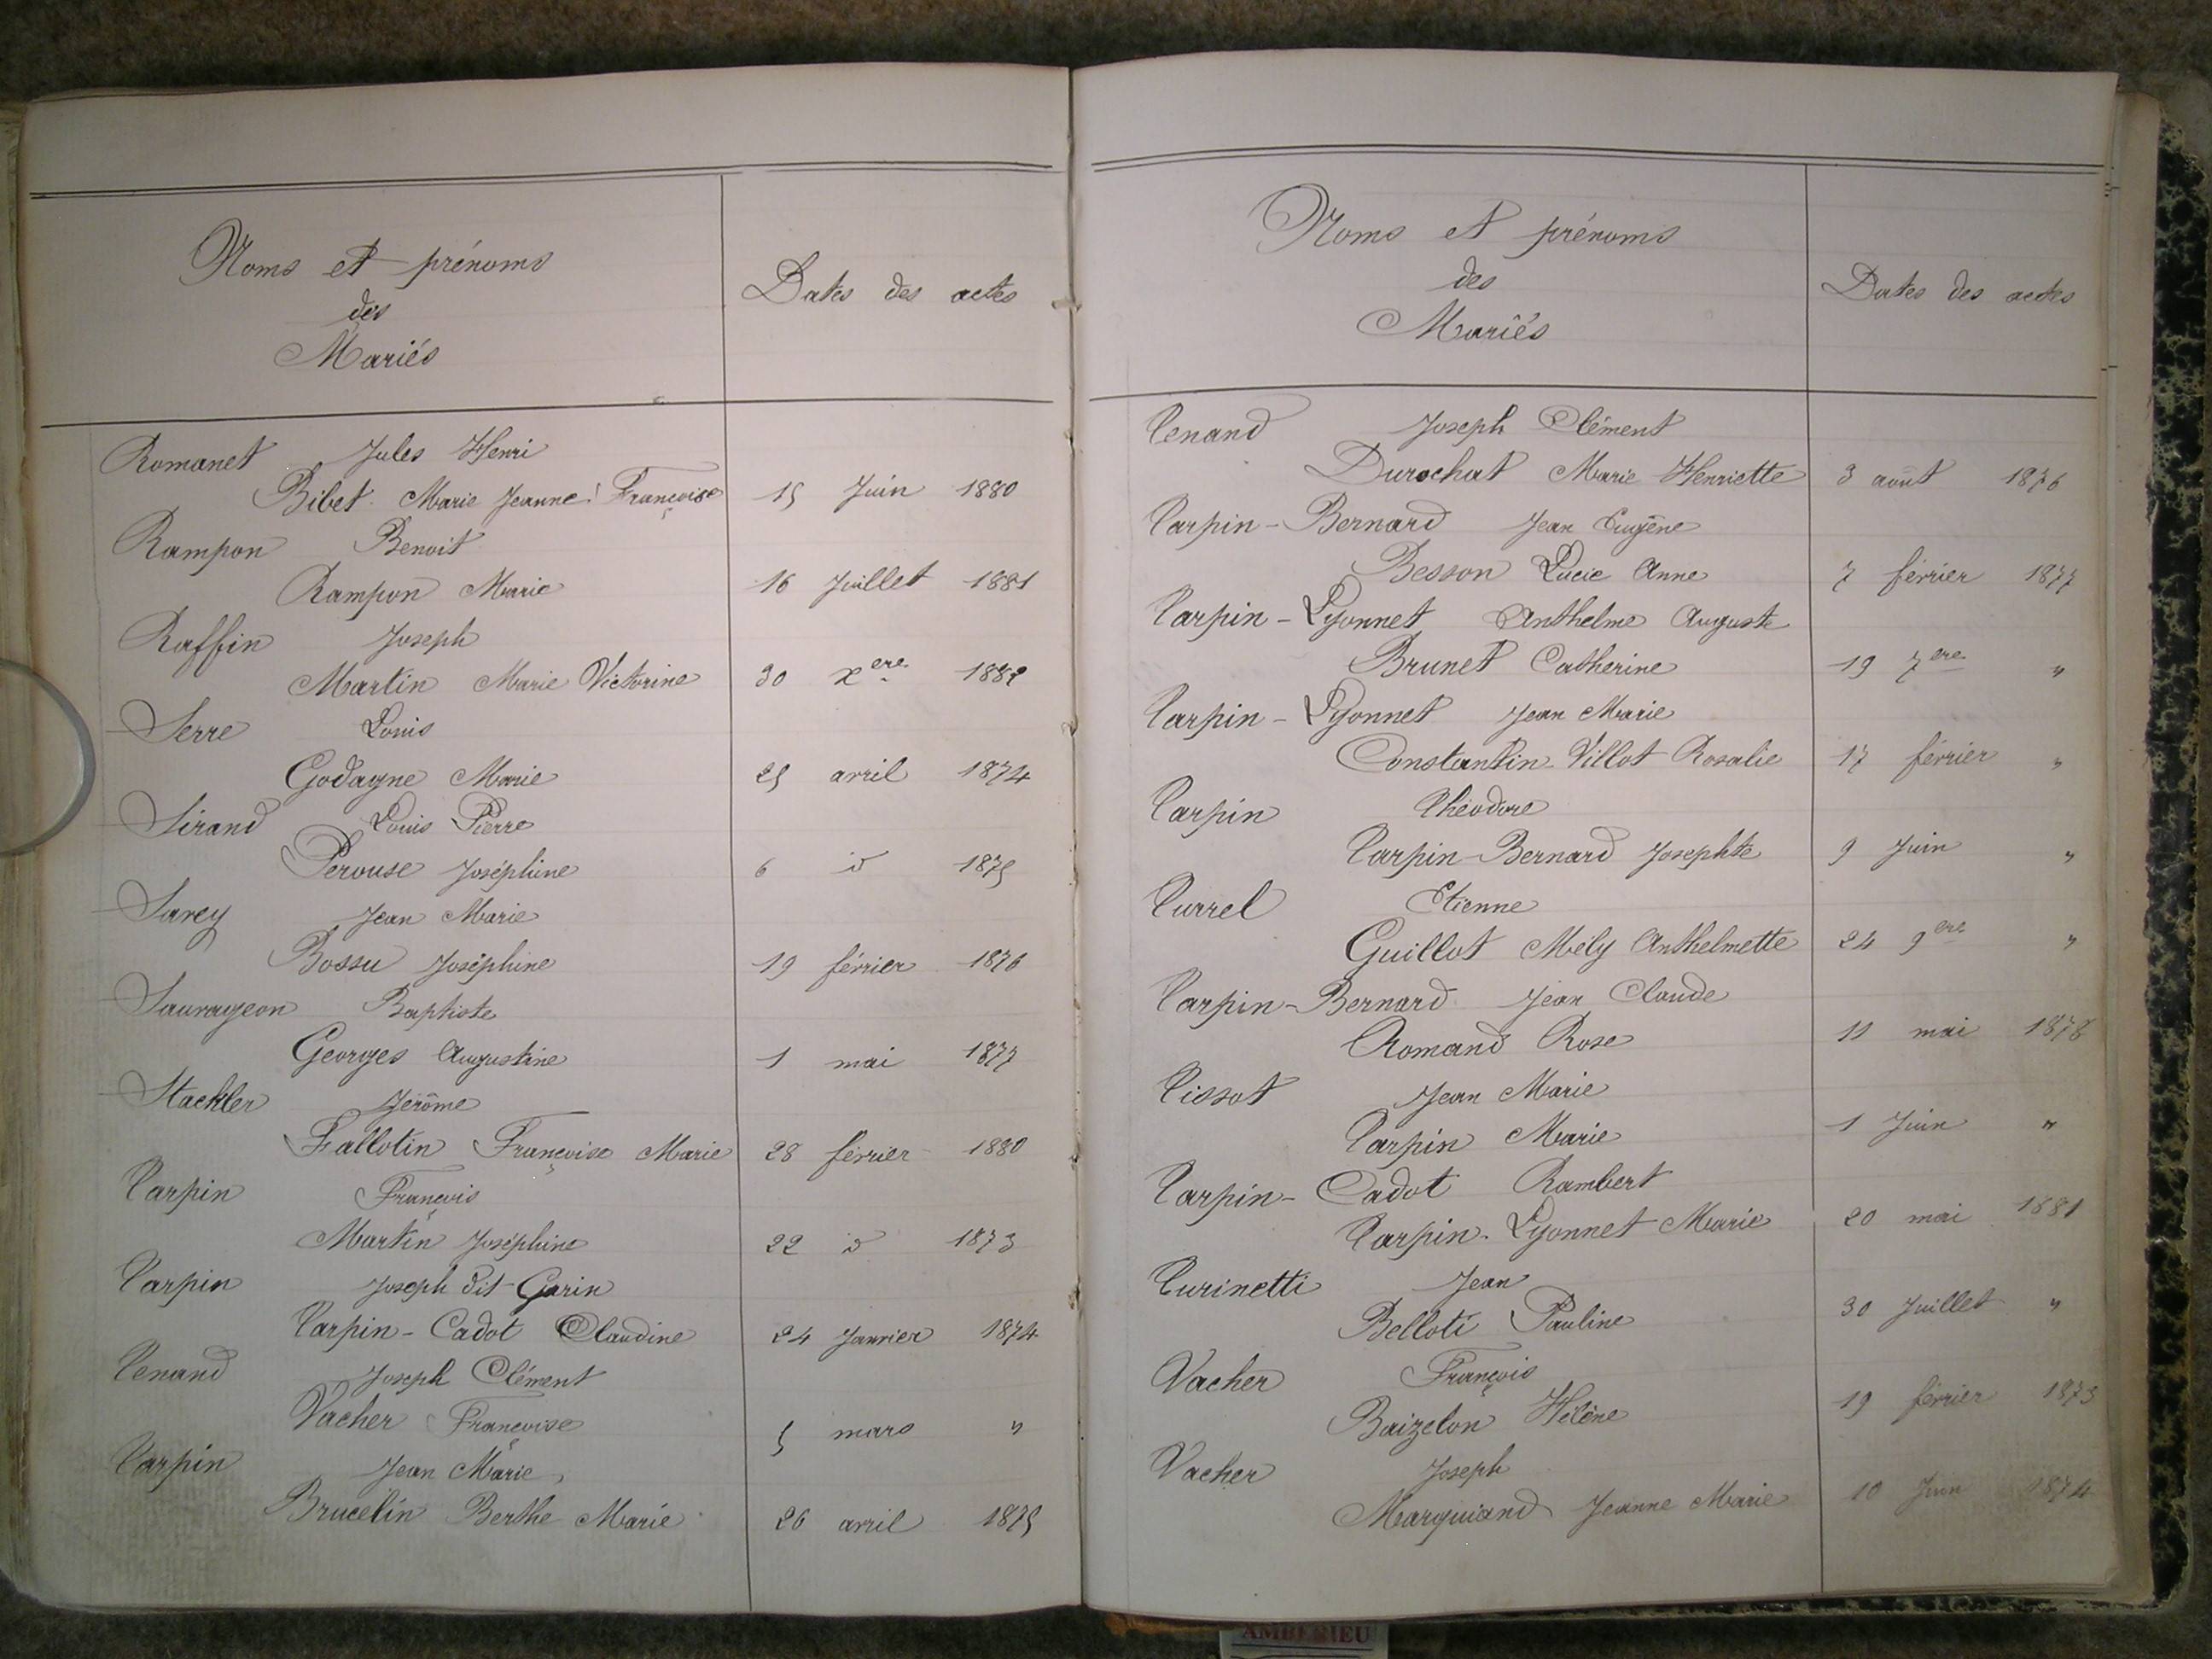 Noms et prénoms
des
Mariés
Dates des actes
Romanet Jules Henri
Bibet Marie Jeanne Françoise 15 Juin 1880
Rampon Benoit
Rampon Marie 16 Juillet 1881
Raffin Joseph
Martin Marie Victorine 30 Xere 1882
Serre Louis
Godagne Marie 25 avril 1874
Sirand Louis Pierre
Perouse Joséphine 6 id 1875
Savey Jean Marie
Bossu Joséphine 19 février 1876
Sauvageon Baptiste
Georges Augustine 1 mai 1877
Stackler Jérôme
Fallotin Françoise Marie 28 février 1880
Tarpin François
Martin Joséphine 22 id 1873
Tarpin Joseph dit Garin
Tarpin-Cadot Claudine 24 Janvier 1874
Tenand Joseph Clément
Vacher Françoise 5 mars "
Tarpin Jean Marie
Brucelin Berthe Marie 26 avril 1875
Noms et prénoms
des
Mariés
Dates des actes
Tenand Joseph Clément
Durochat Marie Henriette 3 août 1876
Tarpin-Bernard Jean Eugène
Besson Lucie Anne 7 février 1877
Tarpin-Lyonnet Anthelme Auguste
Brunet Catherine 19 7ere "
Tarpin-Lyonnet Jean Marie
Constantin-Villot Rosalie 17 février "
Tarpin Théodore
Tarpin-Bernard Josephte 9 Juin "
Turrel Etienne
Guillot Mély Anthelmette 24 9ere "
Tarpin-Bernard Jean Claude
Romand Rose 11 mai 1878
Tissot Jean Marie
Tarpin Marie 1 Juin "
Tarpin-Cadot Rambert
Tarpin-Lyonnet Marie 20 mai 1881
Turinetti Jean
Belloti Pauline 30 Juillet "
Vacher François
Baizelon Hélène 19 février 1873
Vacher Joseph
Marguiand Jeanne Marie 10 Juin 1874
AMBERIEU